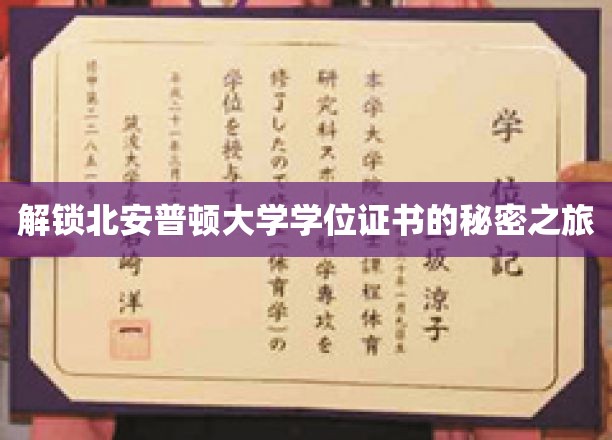 解锁北安普顿大学学位证书的秘密之旅
学位記
坂涼子
本学大学院 士課程体育
研究科スポ 科学専攻を
修了したので (体育学)の
学位を授与す
平成二十一年三月
筑波大学 岩崎洋一
修甲第二二八五一号